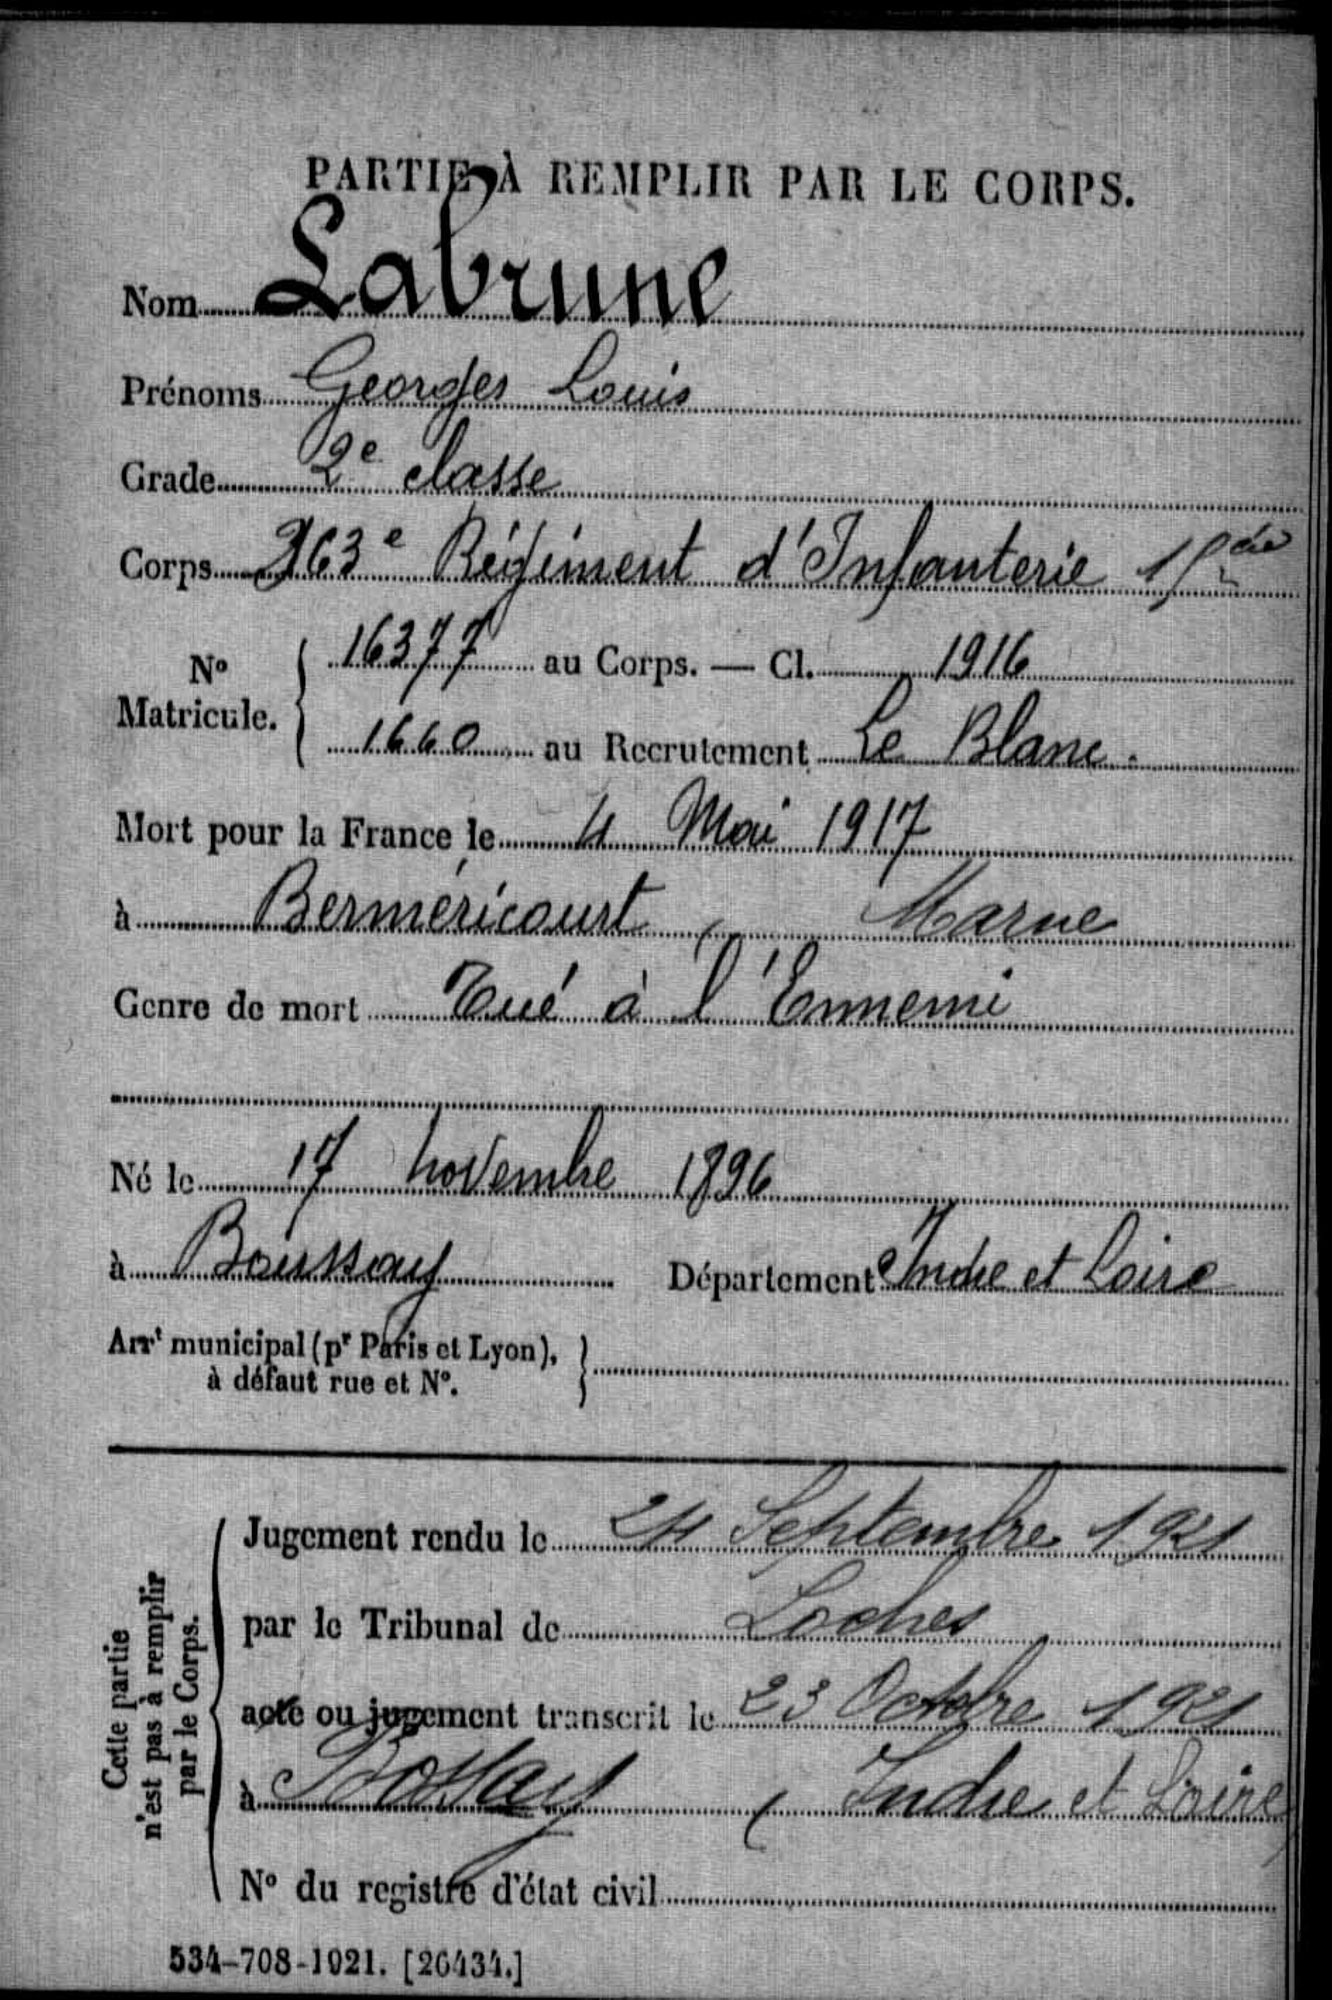 PARTIE À REMPLIR PAR LE CORPS.
Nom Labrune
Prénoms Georges Louis
Grade 2e classe
Corps 363e Régiment d'Infanterie
No Matricule. 16377 au Corps. — Cl. 1916
1660 au Recrutement Le Blanc.
Mort pour la France le 4 Mai 1917
à Berméricourt, Marne
Genre de mort Tué à l'Ennemi
Né le 17 novembre 1896
à Boussay Département Indre et Loire
Arrt municipal (pr Paris et Lyon),
à défaut rue et No.
Cette partie n'est pas à remplir par le Corps.
Jugement rendu le 24 Septembre 1921
par le Tribunal de Loches
acte ou jugement transcrit le 23 Octobre 1921
à Bossay (Indre et Loire)
No du registre d'état civil
534-708-1921. [26434.]